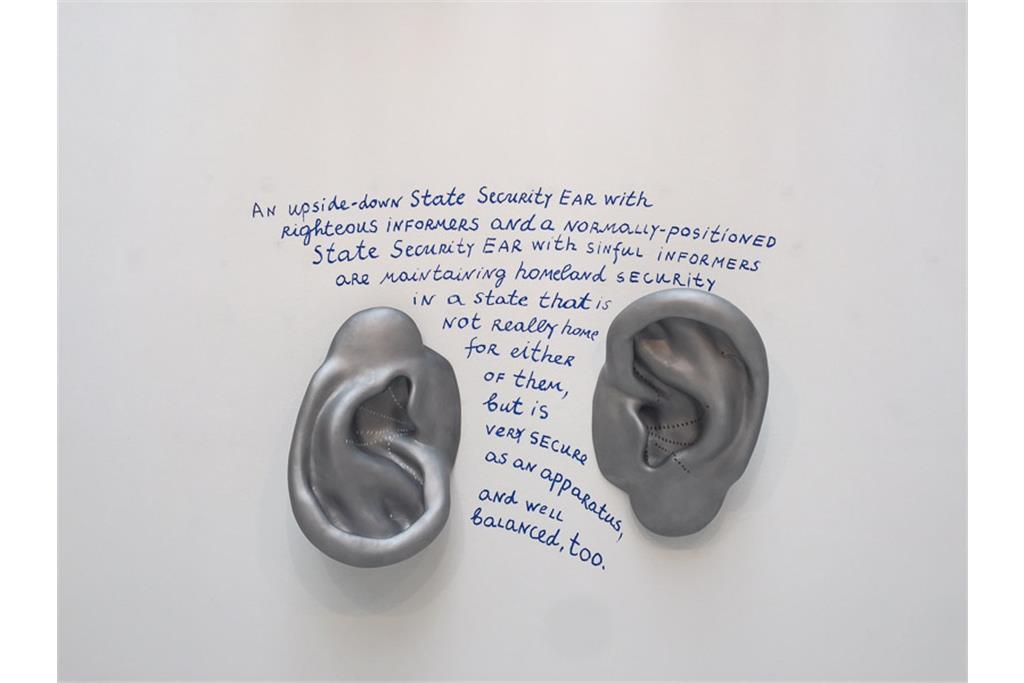 AN upside-down State Security EAR with
Righteous informers and a normally-positioned
State Security EAR with sinful informers
are maintaining homeland security
in a state that is
not really home
for either
of them,
but is
very secure
as an apparatus,
and well
balanced, too.